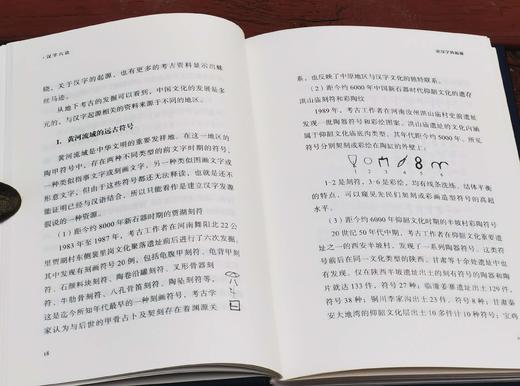 ·汉字六论
晓，关于汉字的起源，也有更多的考古资料显示出蛛
丝马迹。
从地下考古的发掘可以看到，中国文化的发展是多
元的，与汉字起源相关的资料来源于不同的地区。
1. 黄河流域的远古符号
黄河流域是中华文明的重要发祥地。在这一地区的
陶甲符号中，存在两种不同类型的前文字时期的符号。
一种类似指事文字或刻画文字，另一种类似图画文字或
形意文字，但由于这些符号都还无法释读，也就是还不
能证明已经与汉语结合，所以只能看作是建立汉字发源
假说的一种资源。
（1）距今约 8000 年新石器时期的贾湖刻符
1983 年至 1987 年，考古工作者在河南舞阳北 22 公
里贾湖村东侧裴里岗文化聚落遗址前后进行了六次发掘，
其中发现有刻画符号 20 例，包括龟腹甲刻符、龟背甲刻
符、石颜料块刻符、陶卷沿罐刻符、叉形骨器刻
符、牛肋骨刻符、八孔骨笛刻符、陶坠刻符等，
这是迄今所知年代最早的一种刻画符号，考古学
家认为与后世的甲骨占卜及契刻存在着渊源关
18
论汉字的起源
系，也反映了中原地区与汉字文化的独特联系。
（2）距今约 6000 年中国新石器时代仰韶文化的遗存
洪山庙刻符和彩陶纹
1989 年，考古工作者在河南汝州洪山庙村史前遗址
发现一批陶器符号和彩绘图案。洪山庙遗址的文化内涵
属于仰韶文化庙底沟类型，其年代距今约 5000 年。所见
符号分别契刻或彩绘在陶缸的外壁上：
1 2 3 4 5 6
1-2 是刻符，3-6 是彩绘，均有线条洗练、结体平衡
的特点，可以窥见先民们契刻或彩画造型符号的高超
水平。
（3）距今约 6000 年仰韶文化时期的半坡村彩陶符号
20 世纪 50 年代中期，考古工作者在仰韶文化重要遗
址之一的西安半坡村，发现了一系列陶器符号。这类符
号前后在同一文化类型的陕西、甘肃等十余处遗址中也
有发现。仅在陕西半坡遗址出土的刻有符号的陶器和陶
片就达 133 件，符号 27 种；临潼姜寨遗址出土 129 件，
符号 38 种；铜川李家沟出土 23 件，符号 8 种；甘肃秦
安大地湾的仰韶文化层出土 10 多件计 10 种符号；宝鸡